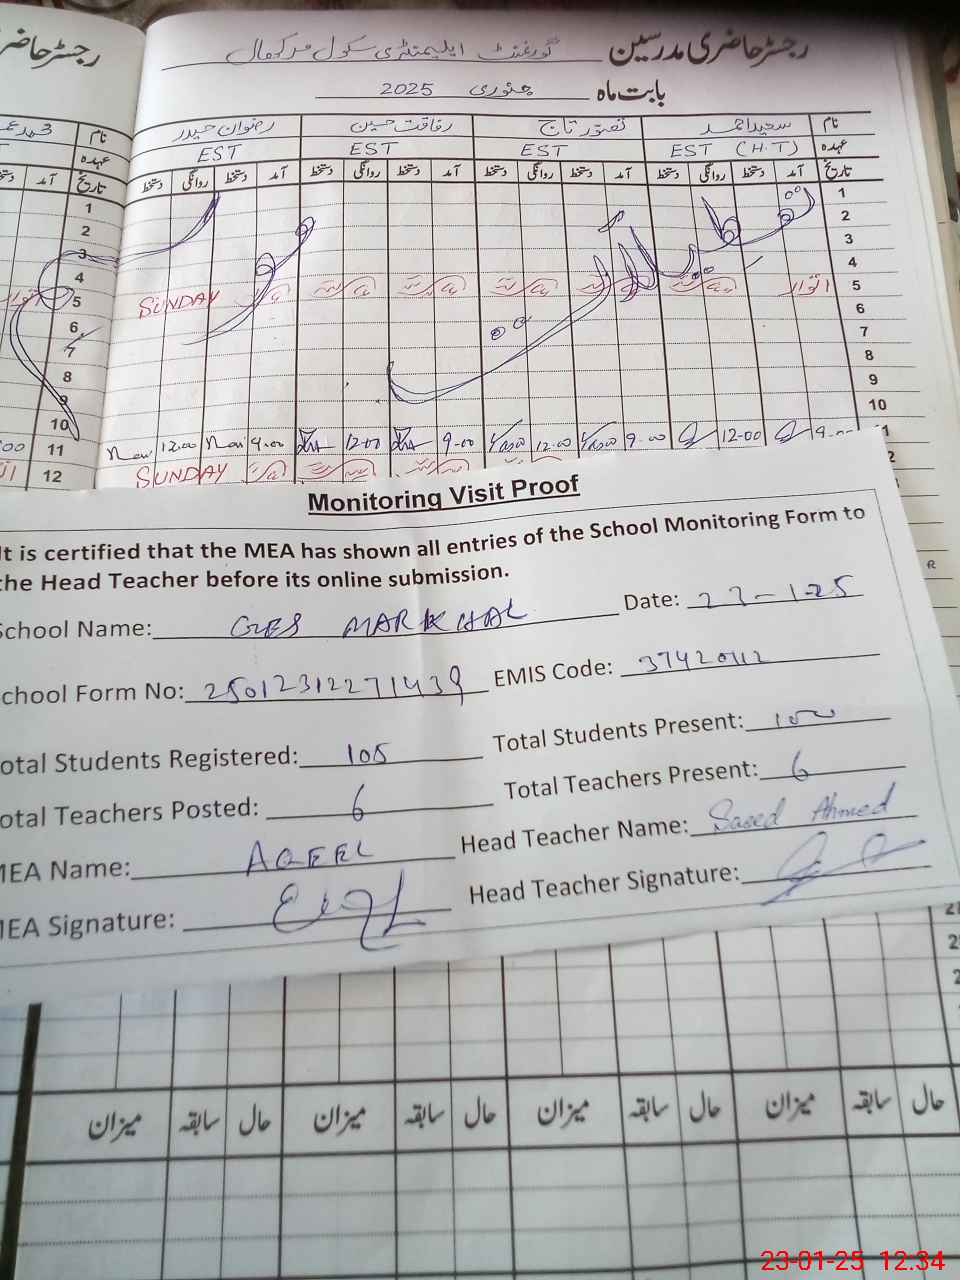 رجسٹر حاضری مدرسین گورنمنٹ ایلیمنٹری سکول مرکھال
بابت ماہ جنوری 2025
نام سعید احمد تصور تاج رفاقت حسین رضوان حیدر
عہدہ EST (H.T) EST EST EST
تاریخ آمد دستخط روانگی دستخط آمد دستخط روانگی دستخط آمد دستخط روانگی دستخط آمد دستخط روانگی دستخط
1
2
3
4
5 اتوار SUNDAY
6
7
8
9
10
11 9.00 12-00 9.00 12.00 9.00 12.00 9.00 12.00
12 SUNDAY
Monitoring Visit Proof
It is certified that the MEA has shown all entries of the School Monitoring Form to
the Head Teacher before its online submission.
School Name: GES MARKHAL Date: 23-1-25
School Form No: EMIS Code: 37420112
Total Students Registered: 105 Total Students Present: 100
Total Teachers Posted: 6 Total Teachers Present: 6
MEA Name: AQEEL Head Teacher Name: Saeed Ahmed
MEA Signature: Head Teacher Signature:
حال سابقہ میزان حال سابقہ میزان حال سابقہ میزان حال سابقہ میزان
23-01-25 12:34